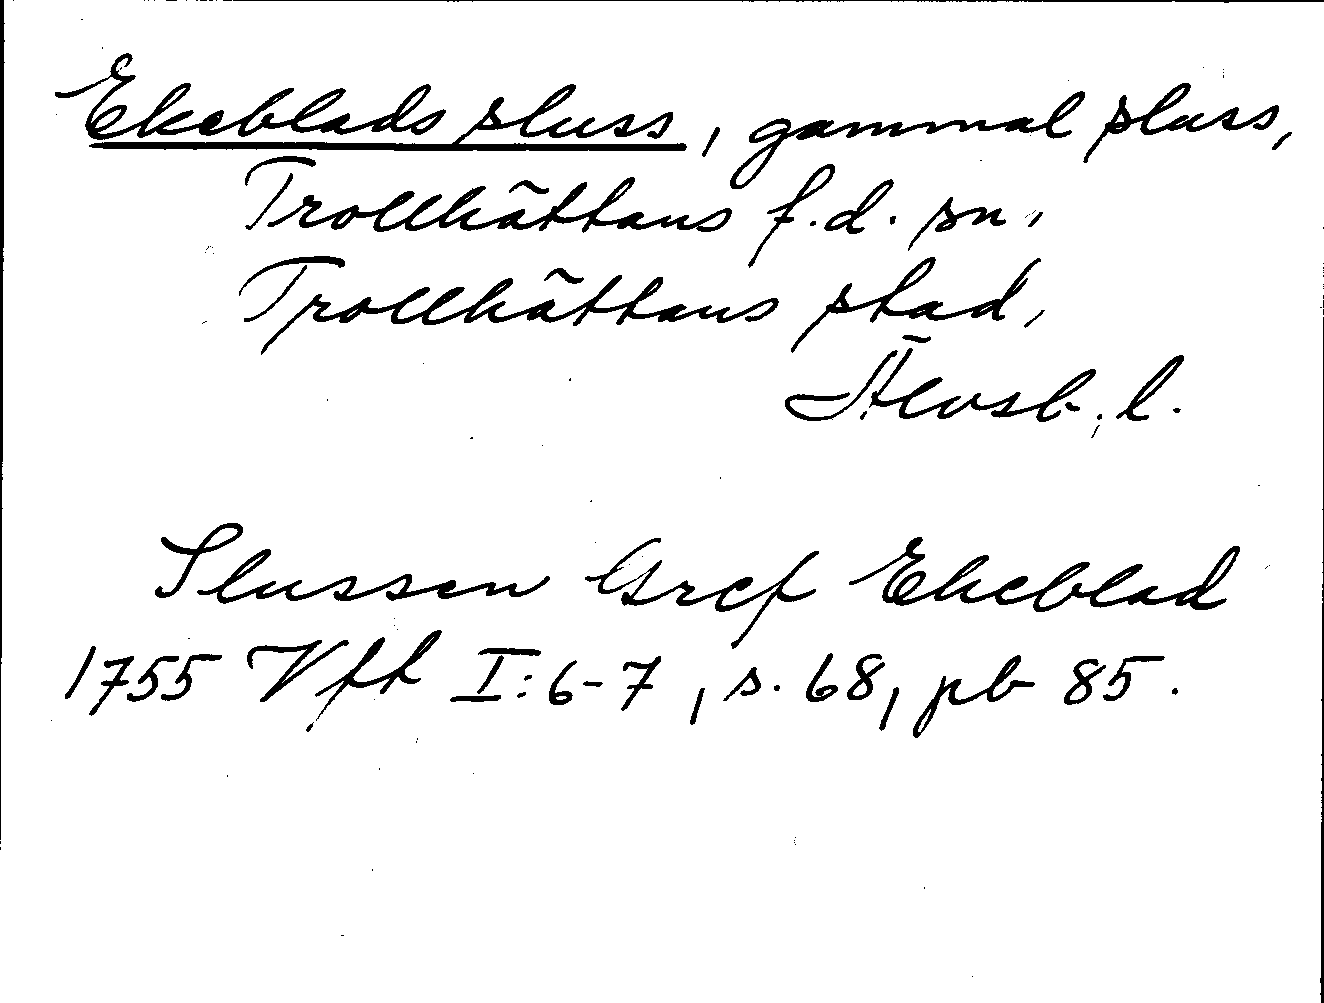 Ekeblads sluss, gammal sluss,
Trollhättans f.d. sn,
Trollhättans stad,
Älvsb. l.
Slussen Gref Ekeblad
1755 Vft I:6-7, s. 68, pb 85.